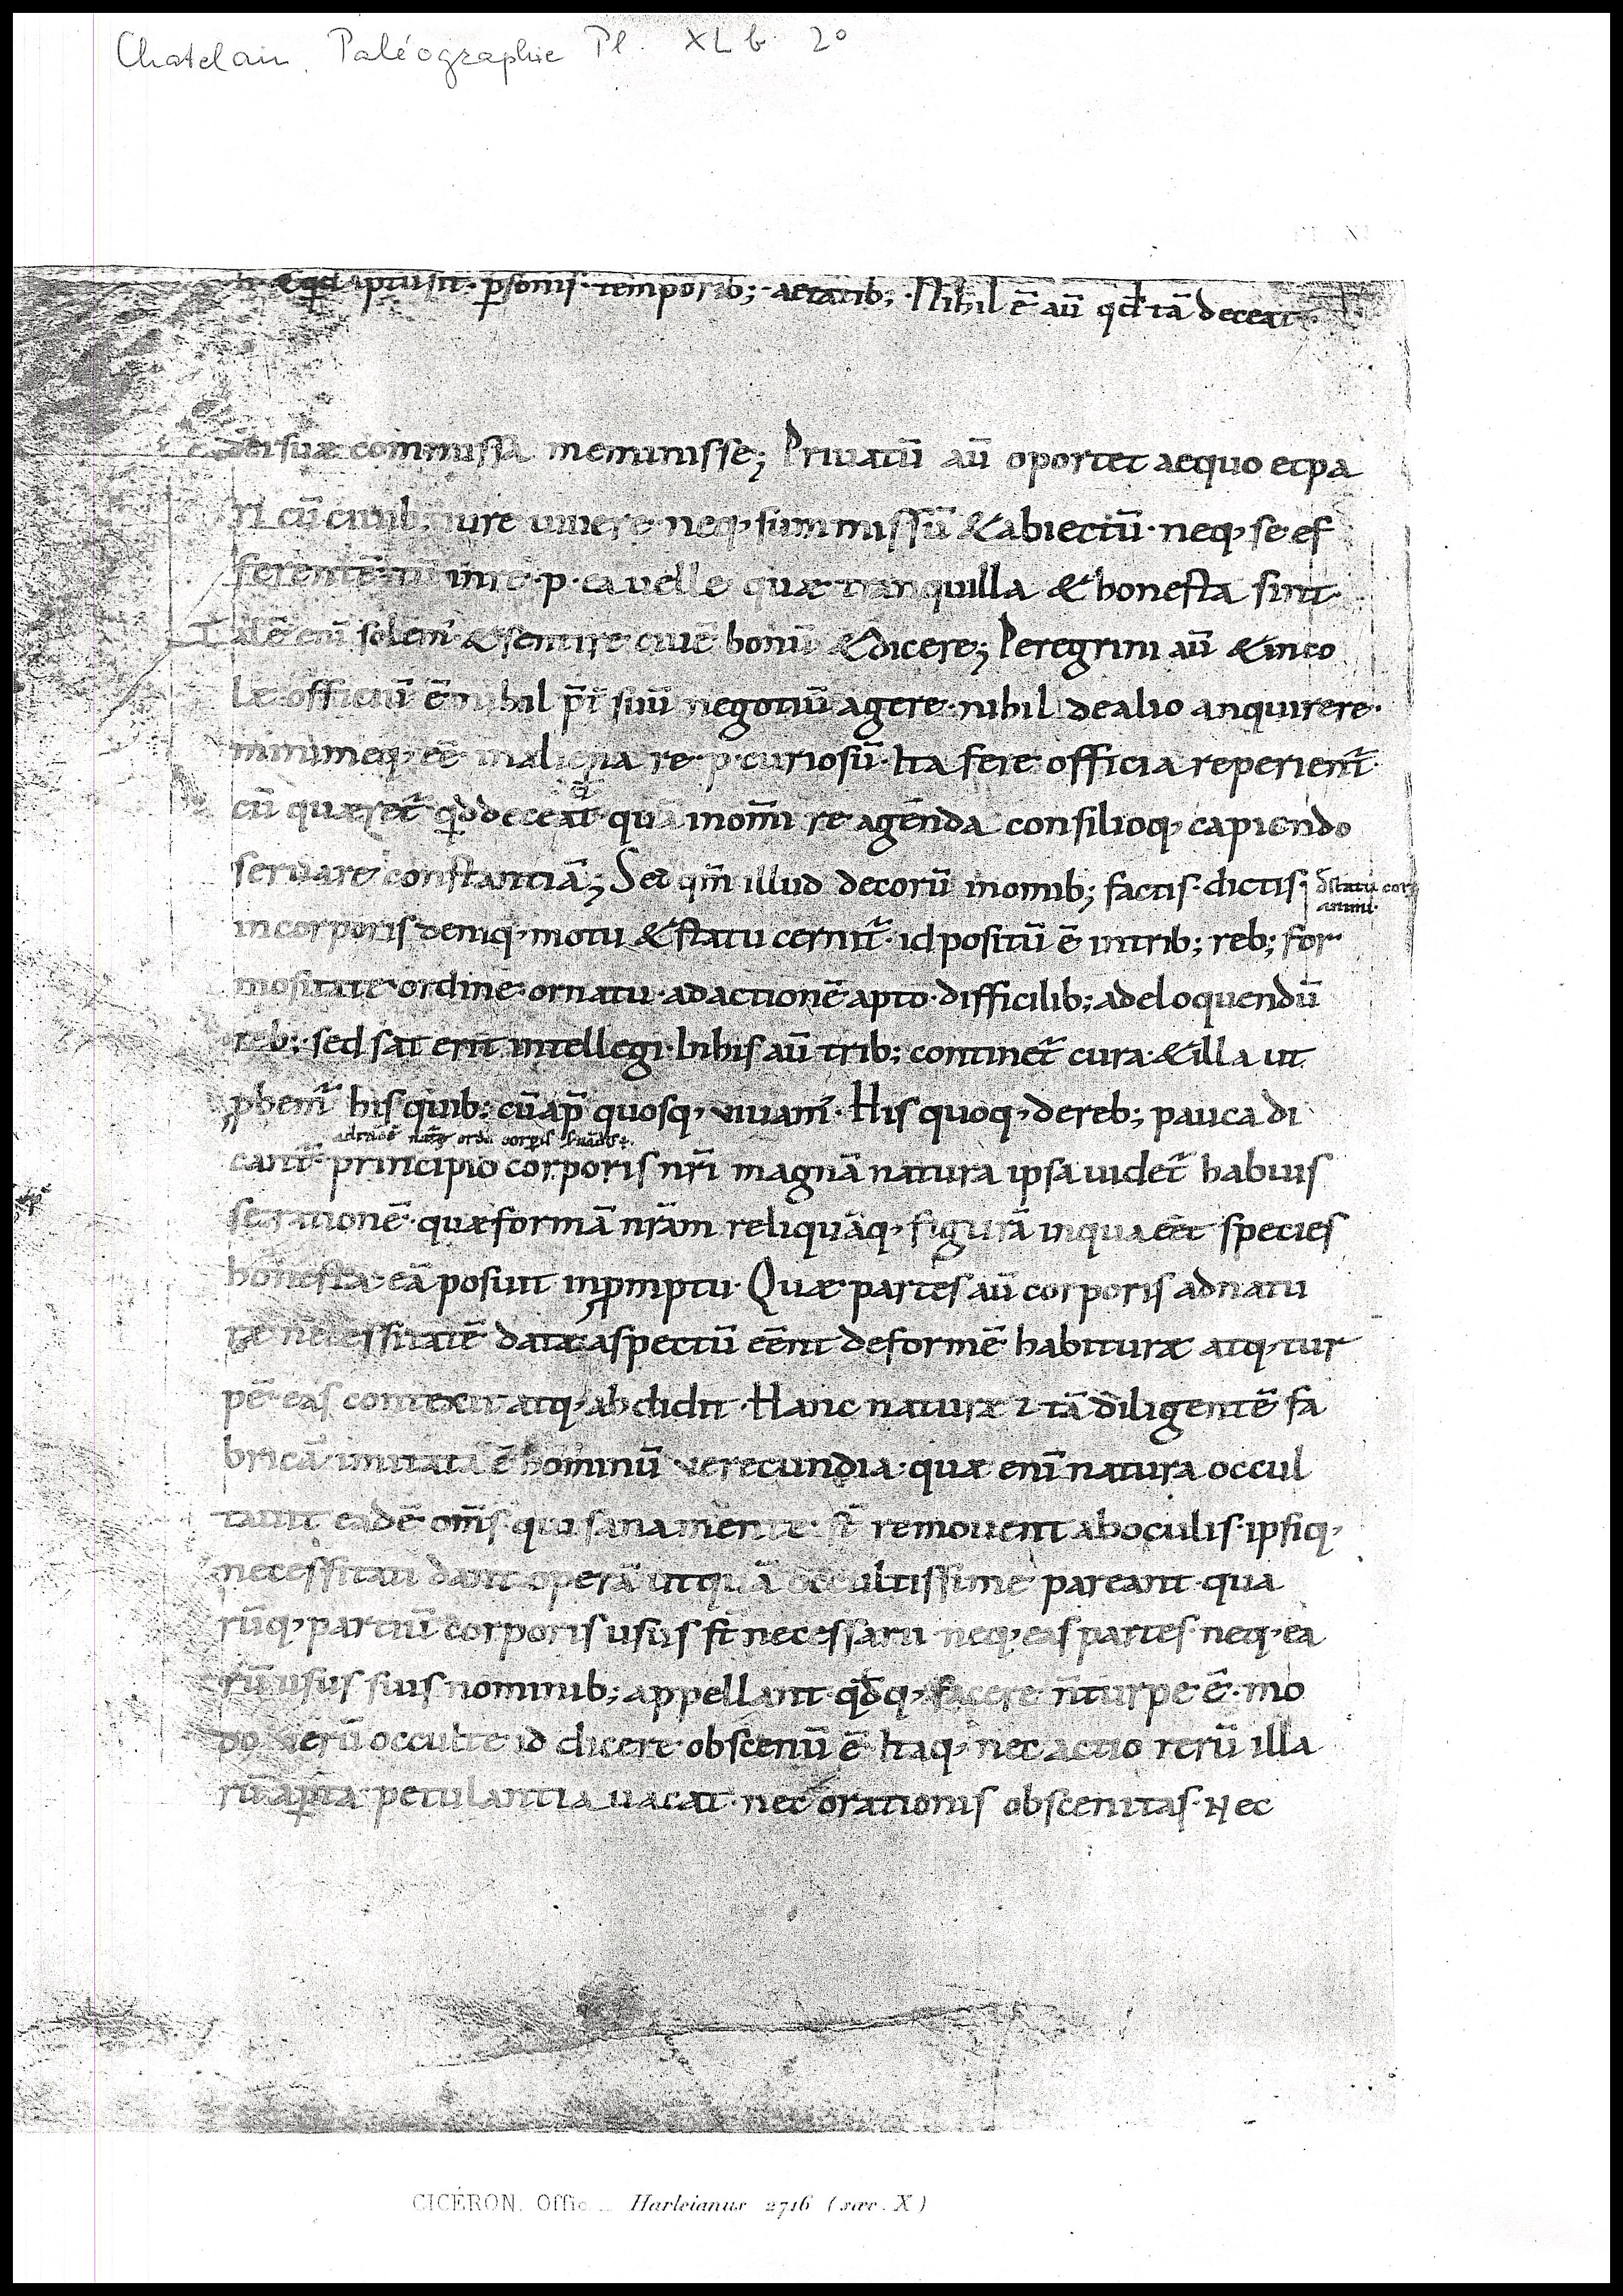 Chatelain. Paléographie Pl. XL b. 2º
aptu sit · p̄sonis · temporib; · aetatib; · Nihil ē aū qd̄ tā deceat
dei suæ commissa meminisse; Priuatū aū oportet aequo et pa
ri cū ciuib; iure uiuere neq, summissū & abiectū · neq, se ef
ferentē · tū in re · p · ea uelle quæ tranquilla & honesta sint ·
Talē enī solem̄ & sentire ciuē bonū & dicere; Peregrini aū & inco
læ officiū ē nihil p̄t suū negotiū agere · nihil de alio anquirere ·
minimeq, eē in aliena re · p · curiosū · Ita fere officia reperient̄ ·
cū quæret̄ qd deceat · qua in om̄i re agenda consilioq, capiendo
seruare constantiā; Sed qm̄ illud decorū in omīb; factis · dictis ·
dstatu cor
animi ·
in corporis deniq, motu & statu cernit̄ · id positū ē in trib; reb; for
mositate · ordine · ornatu · ad actionē apto · difficilib; ad eloquendū
reb; · sed sat erit intellegi · In his aū trib; continet̄ cura & illa ut
pbem̄ his quib; cū ap̄ quosq, uiuam̄ · His quoq, de reb; pauca di
cant̄ · principio corporis nr̄i magnā natura ipsa uidet̄ habuis
se rationē · quæ formā nr̄am reliquāq, figurā in qua eēt species
honesta · eā posuit in pmptu · Quæ partes aū corporis ad natu
ræ necessitatē datæ aspectū eēnt deformē habituræ atq, tur
pē · eas contexit atq, abdidit · Hanc naturæ tā diligentē fa
bricā imitata ē hominū verecundia · quæ enī natura occul
tauit eadē om̄s qui sana mente st̄ remouent ab oculis · ipsiq,
necessitati dant operā ut quā occultissime pareant · qua
rūq, partiū corporis usus st̄ necessarii neq, eas partes neq, ea
rū usus suis nominib; appellant · qdq, facere n̄ turpe ē · mo
do verū occulte id dicere obscenū ē · Itaq, nec actio rerū illa
rū apta petulantia uacat · nec orationis obscenitas · Nec
CICÉRON. Offic. _ Harleianus 2716 (sæc. X)